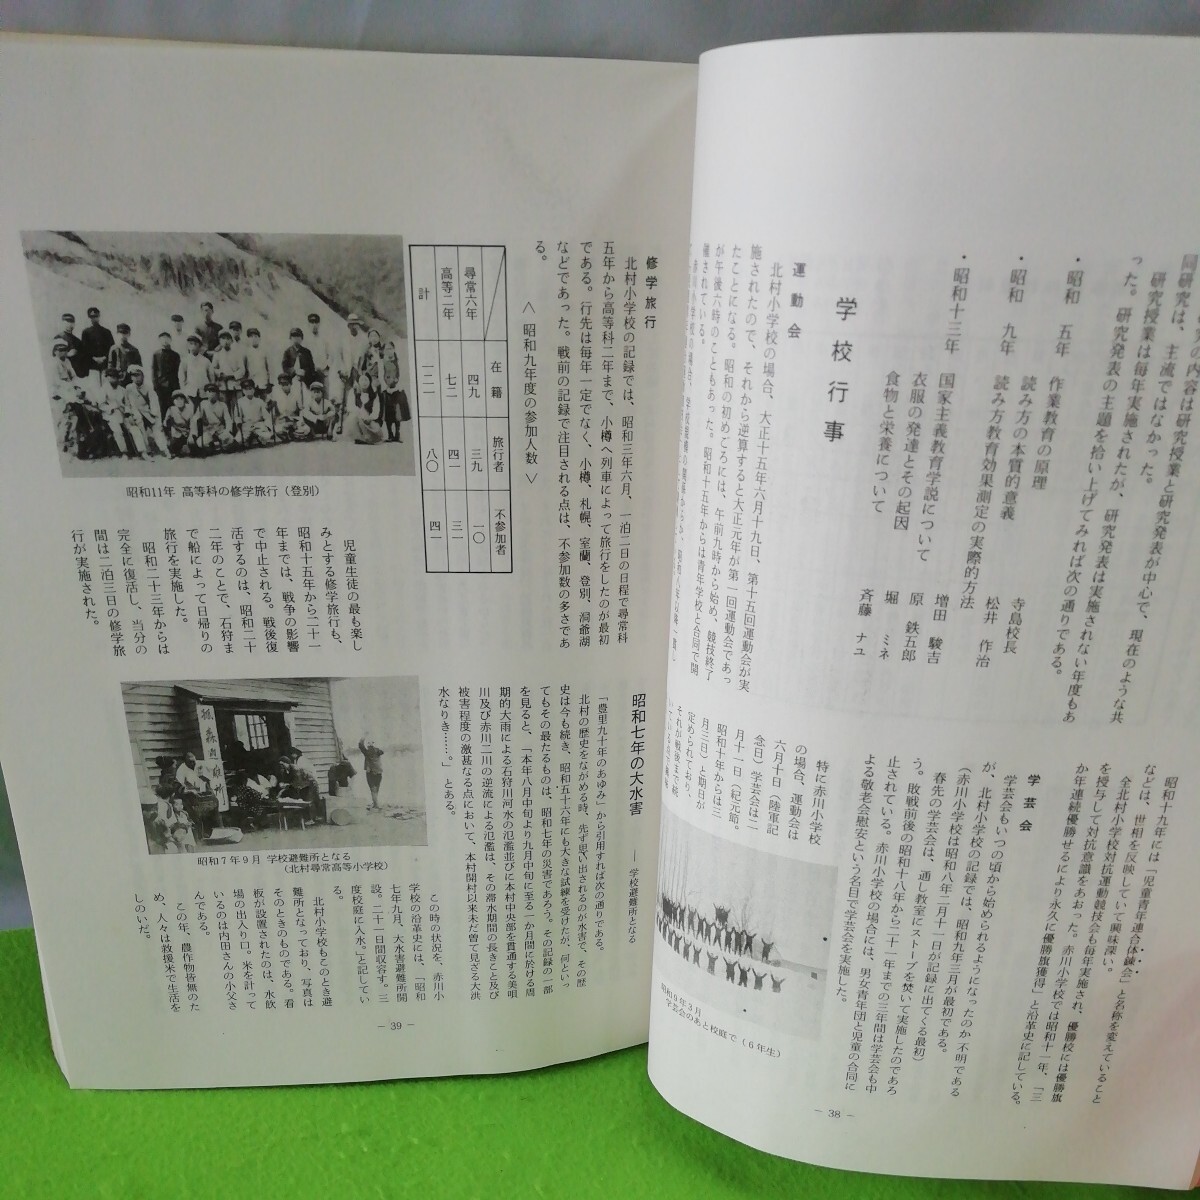 同研究は、主流ではなかった。
研究授業は毎年実施されたが、研究発表は実施されない年度もあ
った。研究発表の主題を拾い上げてみれば次の通りである。
・昭和 五年 作業教育の原理
読み方の本質的意義 寺島校長
・昭和 九年 読み方教育効果測定の実際的方法 松井 作治
・昭和十三年 国家主義教育学説について 増田 駿吉
衣服の発達とその起因 原 鉄五郎
食物と栄養について 堀 ミネ
斉藤 ナユ
学校行事
運動会
北村小学校の場合、大正十五年六月十九日、第十五回運動会が実
施されたので、それから逆算すると大正元年が第一回運動会であっ
たことになる。昭和の初めごろには、午前九時から始め、競技終了
が午後六時のこともあった。昭和十五年からは青年学校と合同で開
催されている。
特に赤川小学校
の場合、運動会は
六月十日（陸軍記
念日）学芸会は二
月十一日（紀元節。
昭和十年からは三
月三日）と期日が
定められており、
それが戦後まで続
昭和9年3月
学芸会のあと校庭で（6年生）
昭和十九年には「児童青年連合体鍊会」と名称を変えていること
などは、世相を反映していて興味深い。
全北村小学校対抗運動競技会も毎年実施され、優勝校には優勝旗
を授与して対抗意識をあおった。赤川小学校では昭和十一年、「三
か年連続優勝せるにより永久に優勝旗獲得」と沿革史に記している。
学芸会
学芸会もいつの頃から始められるようになったのか不明である
が、北村小学校の記録では、昭和九年三月が最初である。
（赤川小学校は昭和八年二月十一日が記録に出てくる最初）
春先の学芸会は、通し教室にストーブを焚いて実施したのであろ
う。敗戦前後の昭和十八年から二十一年までの三年間は学芸会も中
止されている。赤川小学校の場合には、男女青年団と児童の合同に
よる敬老会慰安という名目で学芸会を実施した。
－ 38 －
修学旅行
北村小学校の記録では、昭和三年六月、一泊二日の日程で尋常科
五年から高等科二年まで、小樽へ列車によって旅行をしたのが最初
である。行先は毎年一定でなく、小樽、札幌、室蘭、登別、洞爺湖
などであった。戦前の記録で注目される点は、不参加数の多さであ
る。
＜昭和九年度の参加人数＞
在籍 旅行者 不参加者
尋常六年 四九 三九 一〇
高等二年 七二 四一 三一
計 一二一 八〇 四一
昭和11年 高等科の修学旅行（登別）
児童生徒の最も楽し
みとする修学旅行も、
昭和十五年から二十一
年までは、戦争の影響
で中止される。戦後復
活するのは、昭和二十
二年のことで、石狩ま
で船によって日帰りの
旅行を実施した。
昭和二十三年からは
完全に復活し、当分の
間は二泊三日の修学旅
行が実施された。
昭和七年の大水害 ― 学校避難所となる
「豊里九十年のあゆみ」から引用すれば次の通りである。
北村の歴史をながめる時、先ず思い出されるのが水害で、その歴
史は今も続き、昭和五十六年にも大きな試練を受けたが、何といっ
てもその最たるものは、昭和七年の災害であろう。その記録の一部
を見ると、「本年八月中旬より九月中旬に至る一か月間に於ける周
期的大雨による石狩川河水の氾濫並びに本村中央部を貫通する美唄
川及び赤川二川の逆流による氾濫は、その滞水期間の長きこと及び
被害程度の激甚なる点において、本村開村以来未だ曽て見ざる大洪
水なりき……。」とある。
昭和7年9月 学校避難所となる
（北村尋常高等小学校）
この時の状況を、赤川小
学校の沿革史には、「昭和
七年九月、大水害避難所開
設。二十一日間収容す。三
度校庭に入水。」と記してい
る。
北村小学校もこのとき避
難所となっており、写真は
そのときのものである。看
板が設置されたのは、水飲
場の出入り口。米を計って
いるのは内田さんの小父さ
んである。
この年、農作物皆無のた
め、人々は救援米で生活を
しのいだ。
－ 39 －